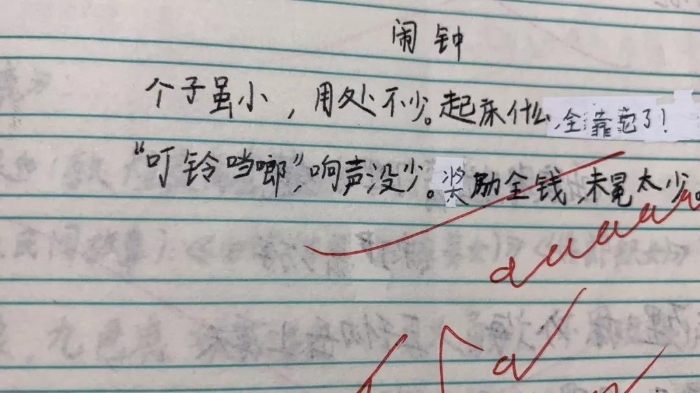 闹钟
个子虽小，用处不少。起床什么全靠它了！
“叮铃当啷”，响声没少。奖励全钱，未免太少。